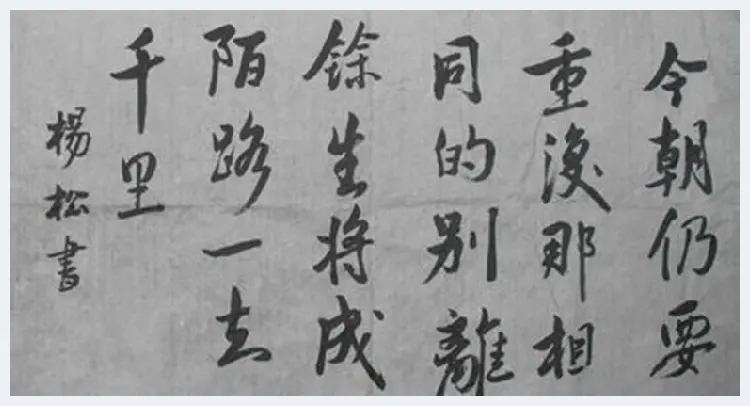 今朝仍要
重複那相
同的别離
餘生将成
陌路一去
千里
楊松書